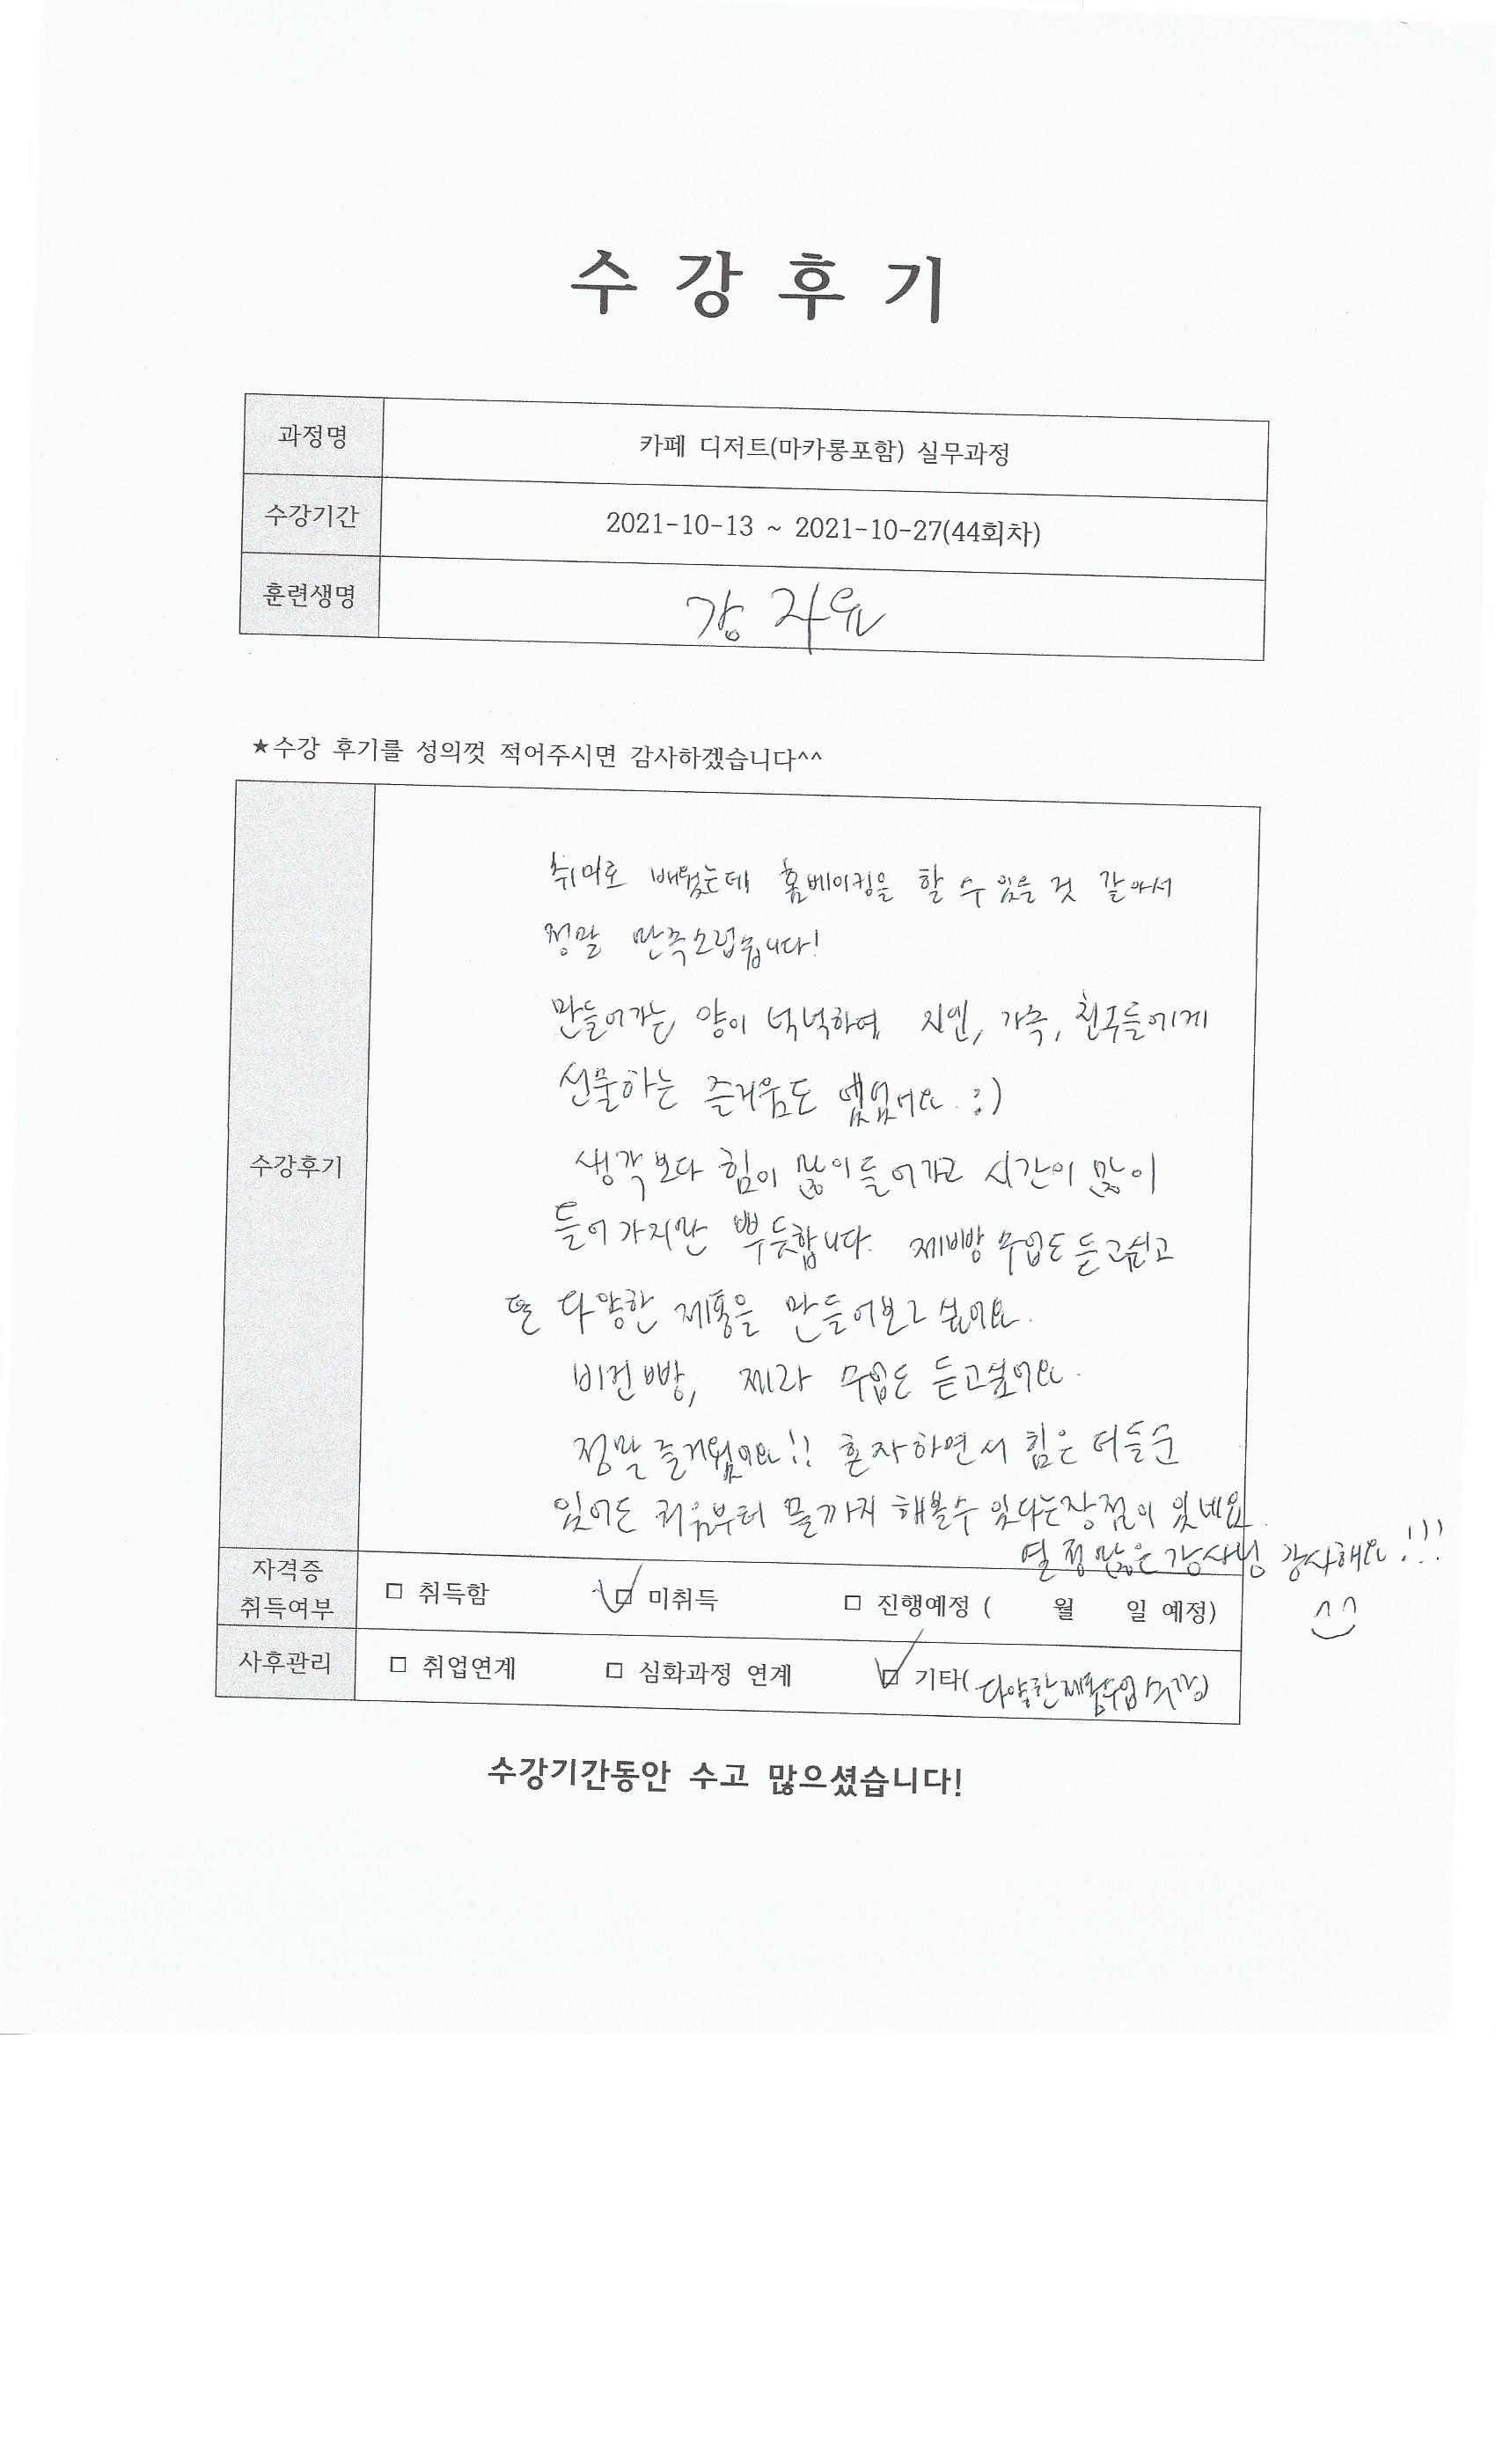 수 강 후 기
과정명 카페 디저트(마카롱포함) 실무과정
수강기간 2021-10-13 ~ 2021-10-27(44회차)
훈련생명 강
★수강 후기를 성의껏 적어주시면 감사하겠습니다^^
수강후기
취미로 배웠는데 홈베이킹을 할 수 있을 것 같아서
정말 만족스럽습니다!
만들어가는 양이 넉넉하여 지인, 가족, 친구들에게
선물하는 즐거움도 :)
생각보다 힘이 많이 들어가고 시간이 많이
들어가지만 뿌듯합니다. 제빵 수업도 듣고싶고
또 다양한 제품을 만들어보고 싶어요.
비건빵, 제과 수업도 듣고싶어요.
정말 즐거웠어요!! 혼자하면서 힘은 더들순
있어도 처음부터 끝까지 해볼수 있다는장점이 있네요.
열정많은 강사님 감사해요!!!
자격증 취득여부 □ 취득함 □ 미취득 □ 진행예정 ( 월 일 예정)
사후관리 □ 취업연계 □ 심화과정 연계 □ 기타( 다양한제품수업 수강)
수강기간동안 수고 많으셨습니다!